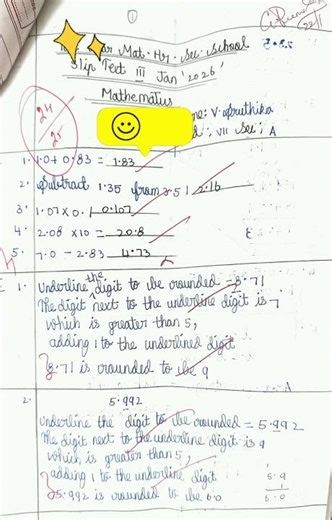 ①
Mat. Hr. Sec. School
Slip Test III Jan '2026'
Mathematics
24
25
V. Sruthika
VII Sec: A
1. 1.0 + 0.83 = 1.83
2. Subtract 1.35 from 3.51 2.16
3. 1.07 x 0.1 0.107
4. 2.08 x 10 = 20.8
5. 7.0 - 2.83 4.73
1. Underline the digit to be rounded - 8.71
The digit next to the underline digit is 7
which is greater than 5,
adding 1 to the underlined digit
8.71 is rounded to be 9
2. 5.992
Underline the digit to be rounded = 5.992
The digit next to the underline digit is 9
which is greater than 5,
adding 1 to the underline digit
5.992 is rounded to be 6.0
5.9
1
6.0